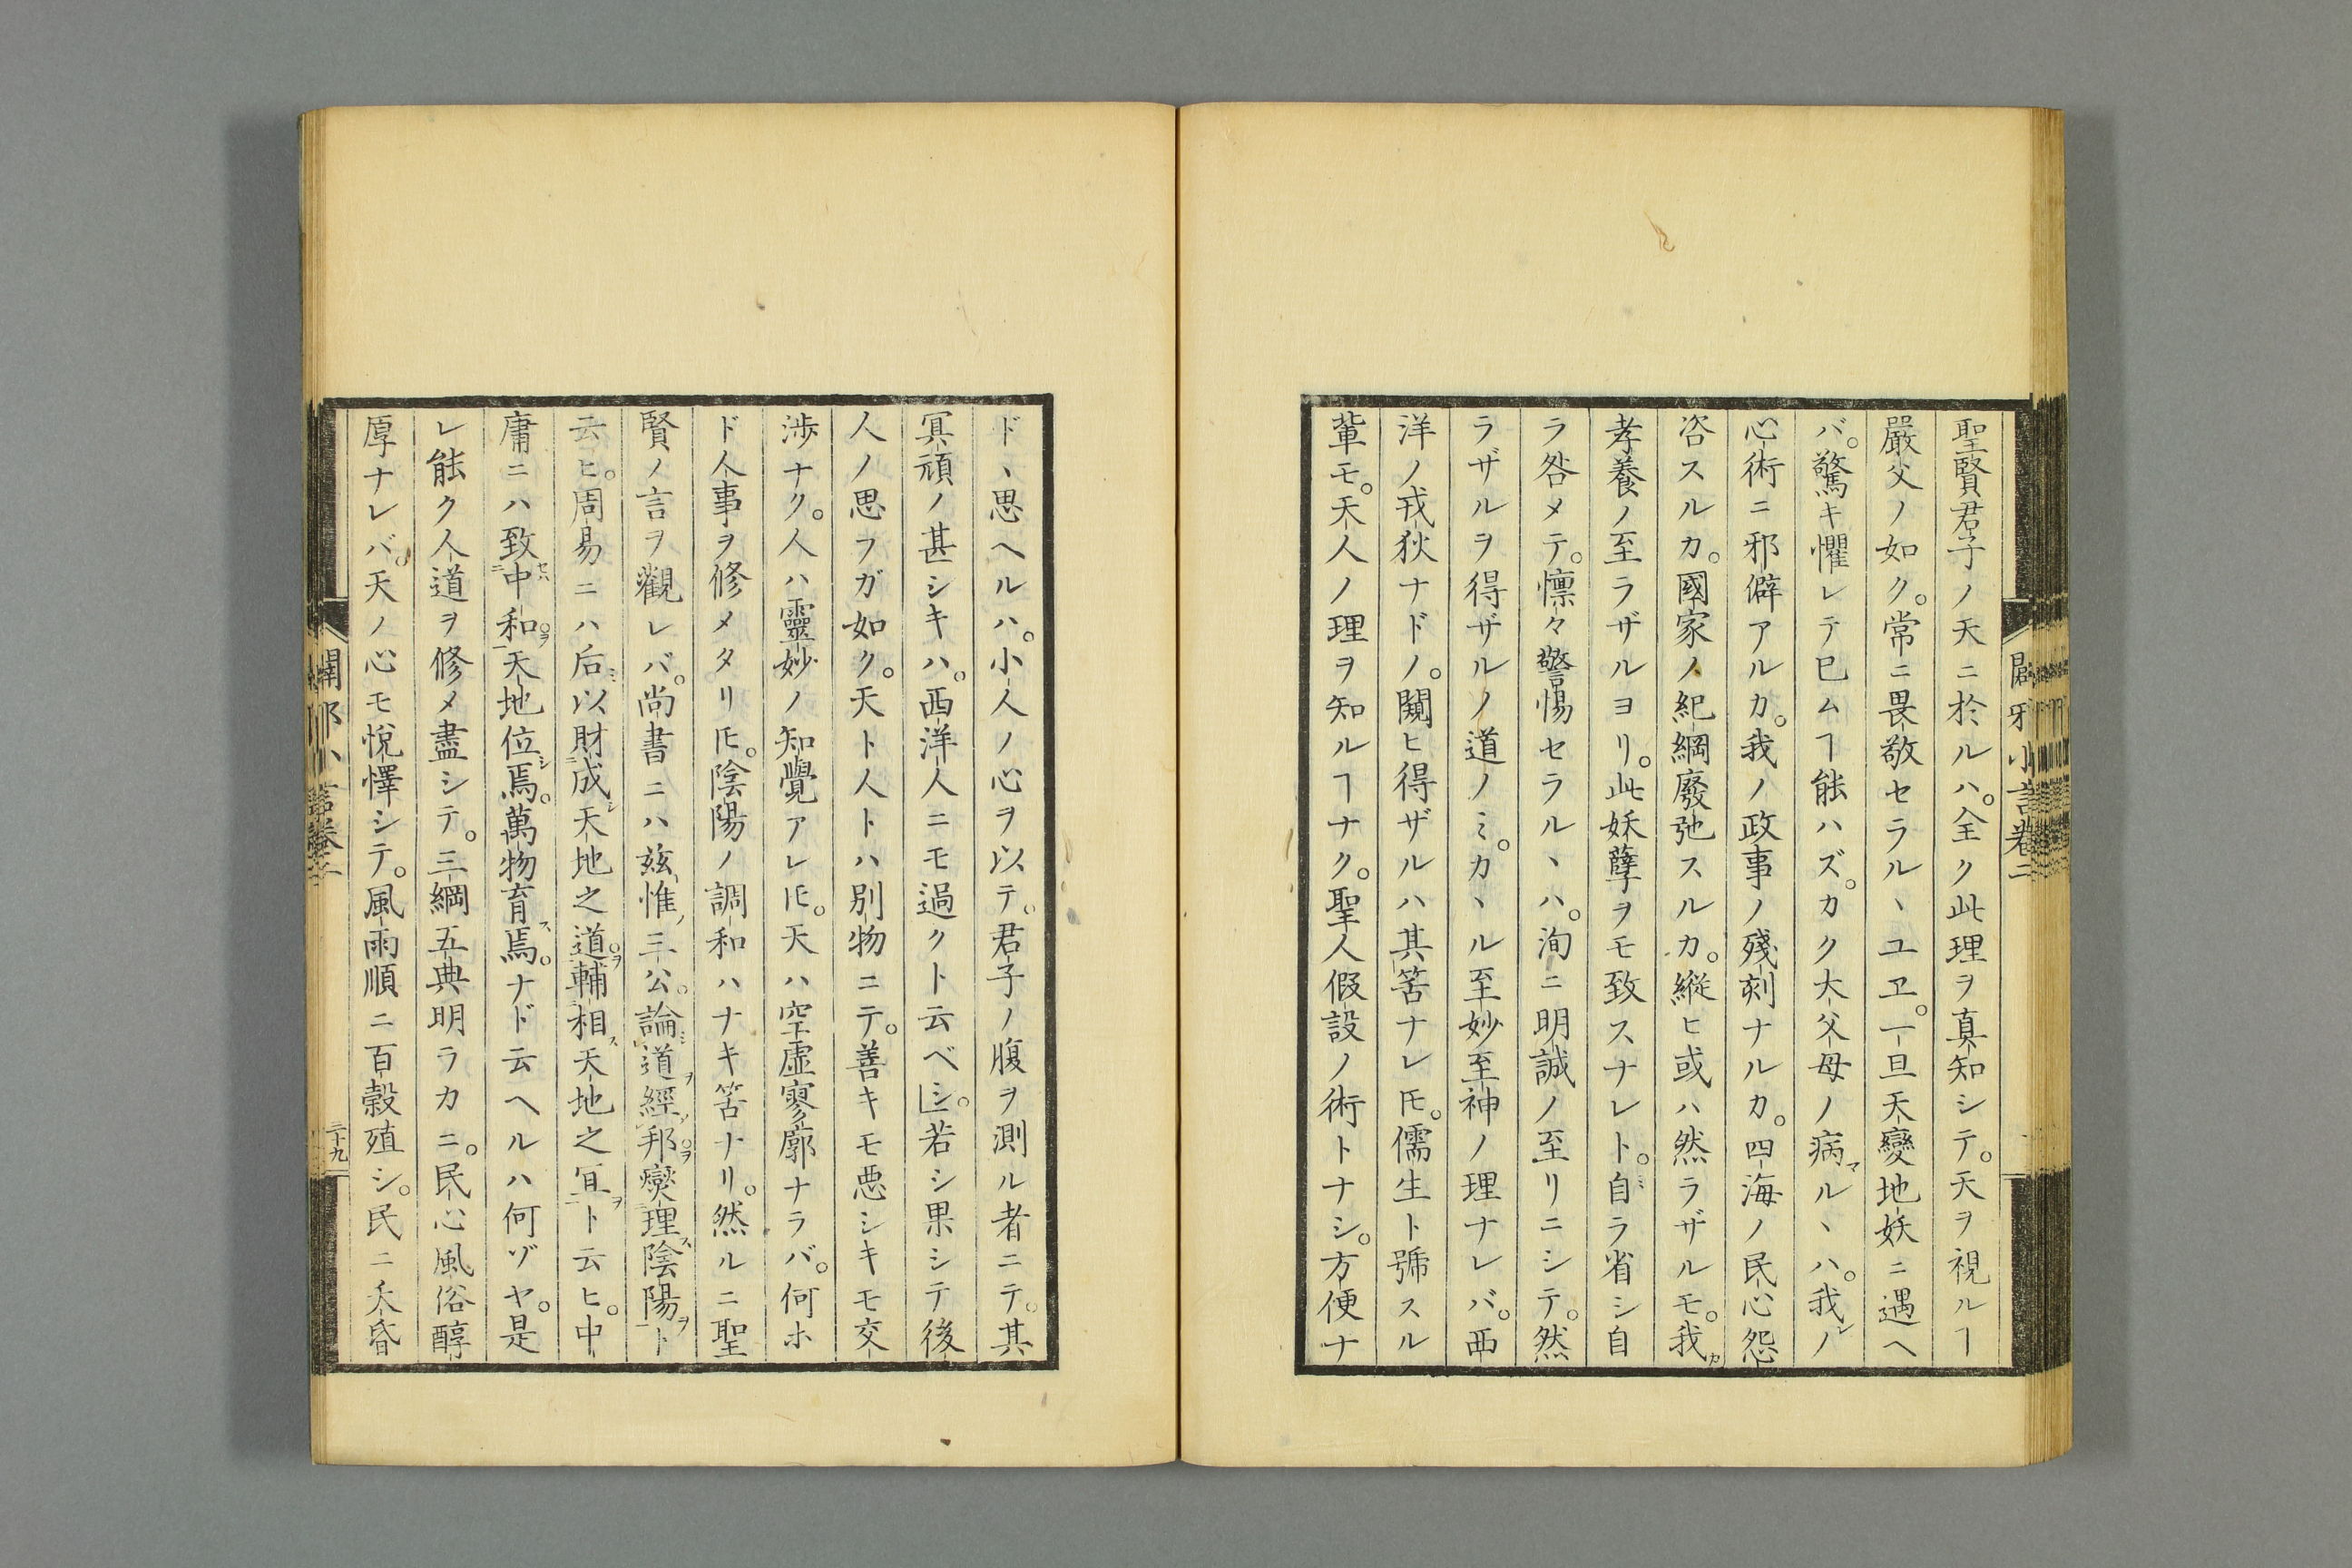 聖賢君子ノ天ニ於ルハ。全ク此理ヲ真知シテ。天ヲ視ルヿ
嚴父ノ如ク。常ニ畏敬セラルヽユヱ。一旦天變地妖ニ遇ヘ
バ。驚キ懼レテ已ムヿ能ハズ。カク大父母ノ病マルヽハ。我レノ
心術ニ邪僻アルカ。我ノ政事ノ殘刻ナルカ。四海ノ民心怨
咨スルカ。國家ノ紀綱廢弛スルカ。縱ヒ或ハ然ラザルモ。我カ
孝養ノ至ラザルヨリ。此妖孽ヲモ致スナレト。自ミラ省シ自
ラ咎メテ。懍々警惕セラルヽハ。洵ニ明誠ノ至リニシテ。然
ラザルヲ得ザルノ道ノミ。カヽル至妙至神ノ理ナレバ。西
洋ノ戎狄ナドノ。闚ヒ得ザルハ其筈ナレㇳモ。儒生ト號スル
輩モ。天人ノ理ヲ知ルヿナク。聖人假設ノ術トナシ。方便ナ
闢邪小言卷二
ドヽ思ヘルハ。小人ノ心ヲ以テ。君子ノ腹ヲ測ル者ニテ。其
冥頑ノ甚シキハ。西洋人ニモ過クト云ベシ。若シ果シテ後
人ノ思フガ如ク。天ト人トハ別物ニテ。善キモ悪シキモ交
渉ナク。人ハ靈妙ノ知覺アレㇳモ。天ハ空虛寥廓ナラバ。何ホ
ド人事ヲ修メタリㇳモ。陰陽ノ調和ハナキ筈ナリ。然ルニ聖
賢ノ言ヲ觀レバ。尚書ニハ玆惟ノ三公。論ミ道ヲ經ノ邦ヲ。燮理ス陰陽ヲト
云ヒ。周易ニハ后ミ以財成シ天地之道ヲ。輔相ス天地之宜ヲト云ヒ。中
庸ニハ致セハ中和ヲ。天地位シ焉。萬物育ス焉。ナド云ヘルハ何ゾヤ。是
レ能ク人道ヲ修メ盡シテ。三綱五典明ラカニ。民心風俗醇
厚ナレバ。天ノ心モ悅懌シテ。風雨順ニ百穀殖シ。民ニ夭昏
二十九